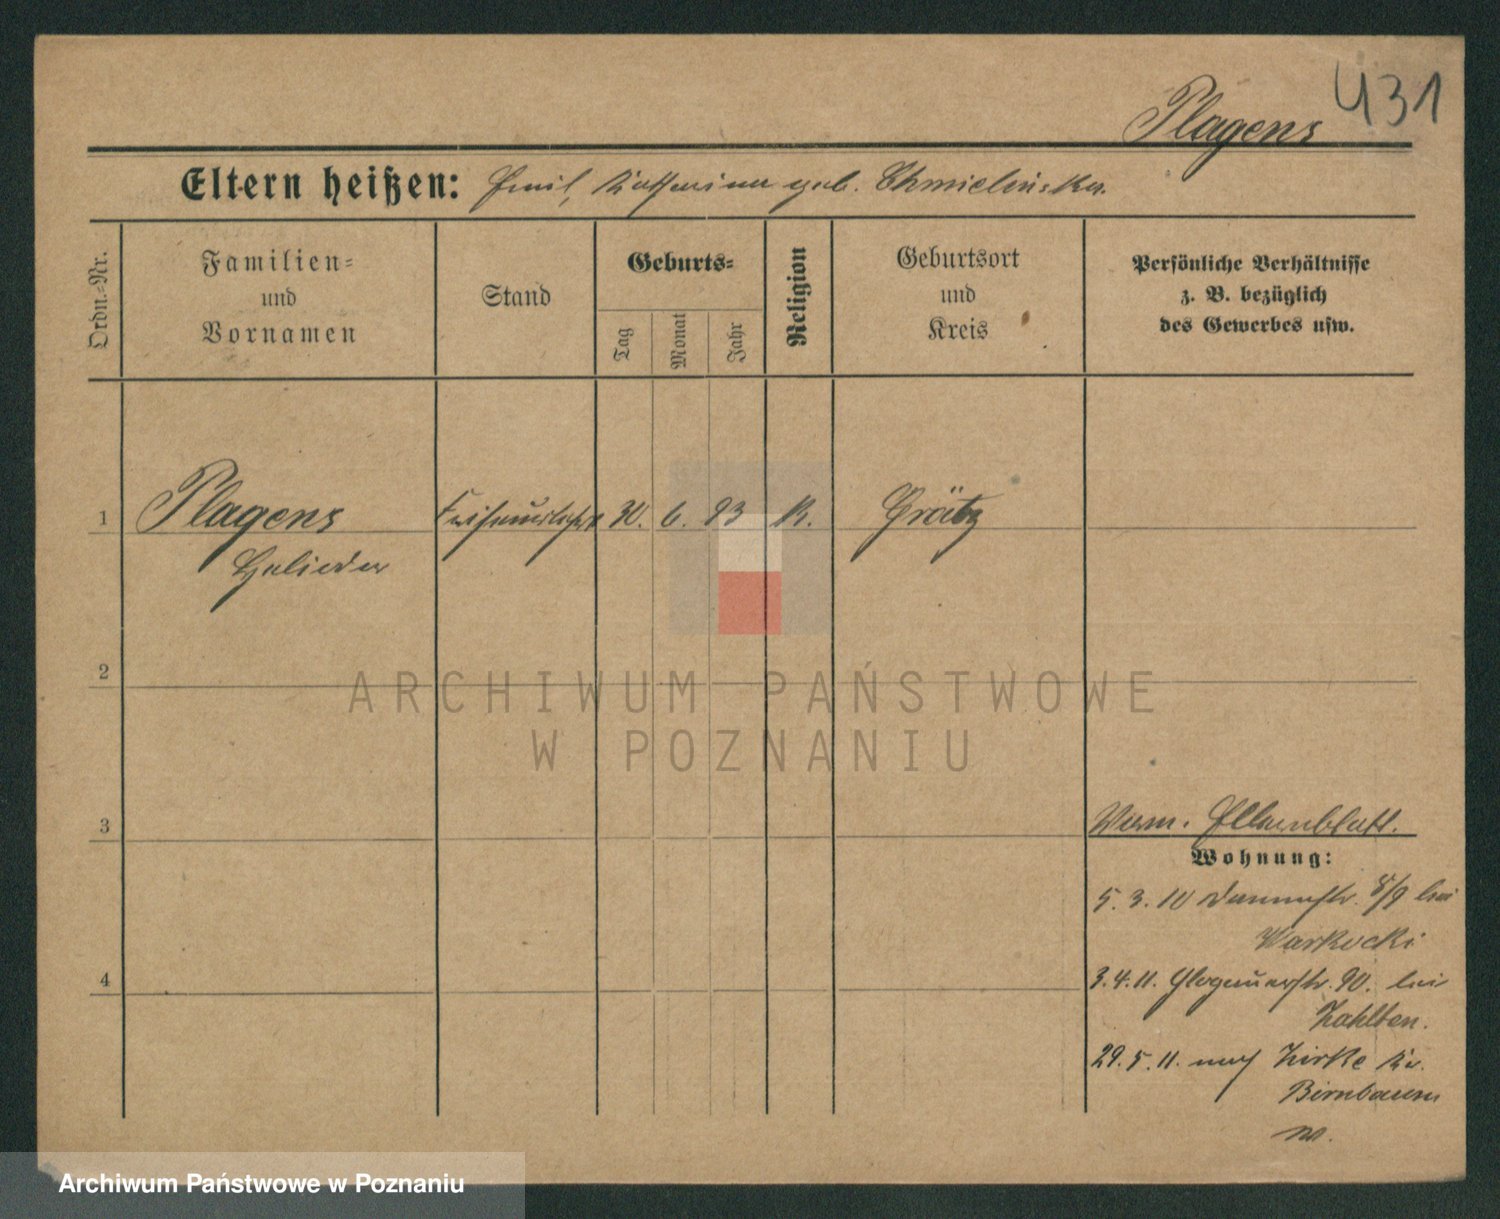 431
Plagens
Eltern heißen: Emil, Katharina geb. Chmielinska.
Ordn.-Nr.
Familien-
und
Vornamen
Stand
Geburts-
Tag
Monat
Jahr
Religion
Geburtsort
und
Kreis
Persönliche Verhältnisse
z. B. bezüglich
des Gewerbes usw.
1 Plagens 30. 6. 93 K. Grätz
2
3
Elternblatt.
Wohnung:
5. 3. 10 8/9 bei
Warkocki
3. 4. 11. Glogauerstr. 90. bei
Zahlten.
29. 5. 11. nach Zirke Kr.
Birnbaum
4
ARCHIWUM PAŃSTWOWE
W POZNANIU
Archiwum Państwowe w Poznaniu